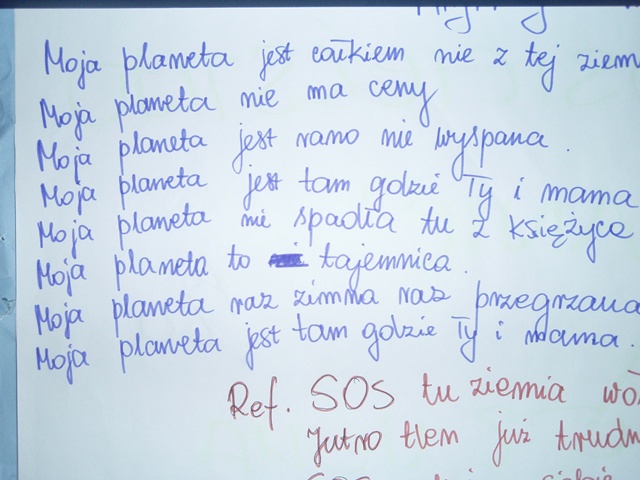 Moja planeta jest całkiem nie z tej ziem
Moja planeta nie ma ceny
Moja planeta jest rano nie wyspana.
Moja planeta jest tam gdzie Ty i mama
Moja planeta nie spadła tu z księżyca
Moja planeta to tajemnica.
Moja planeta raz zimna raz przegrzana
Moja planeta jest tam gdzie Ty i mama.
Ref. SOS tu ziemia wo
Jutro tlem już trudn
SOS